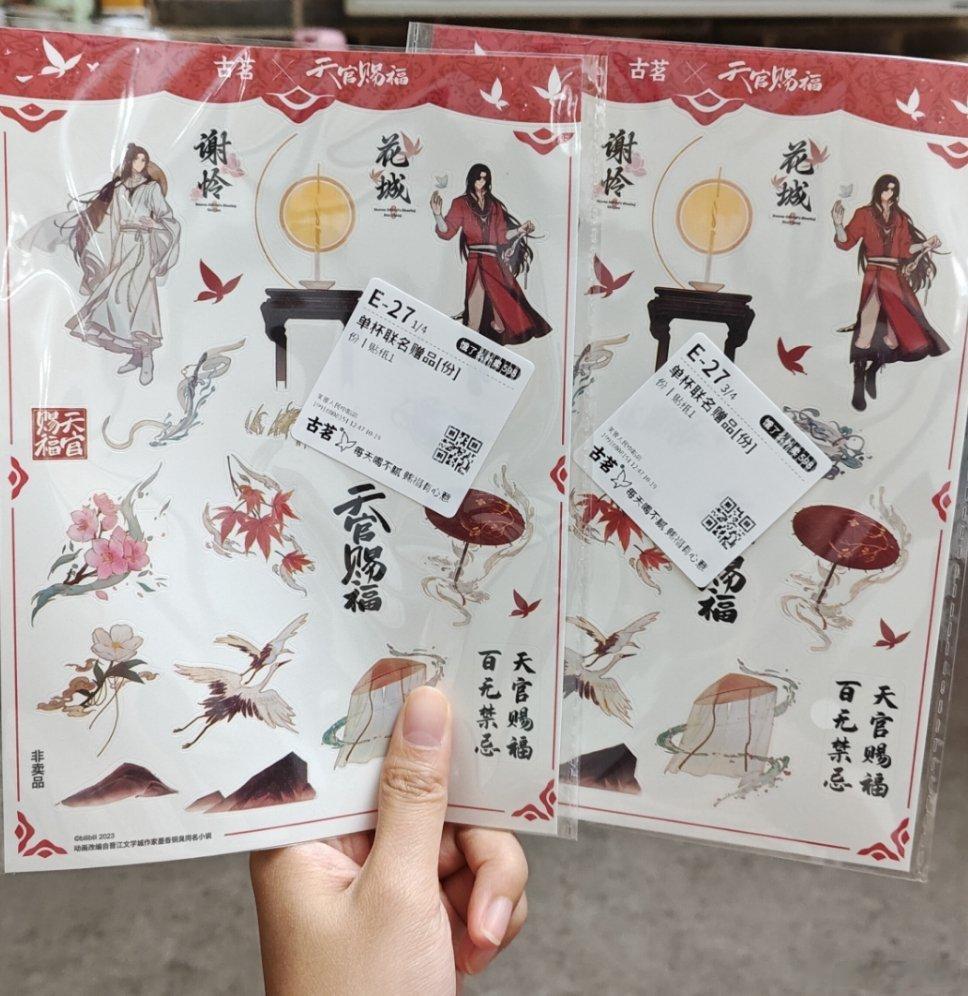 古茗 × 天官赐福
谢怜
花城
E-27 1/4
单杯联名赠品[份]
份 | 贴纸1
古茗
每天喝不腻
天官
赐福
天官赐福
天官赐福
百无禁忌
非卖品
©bilibili 2023
动画改编自晋江文学城作家墨香铜臭同名小说
古茗 × 天官赐福
谢怜
花城
E-27 3/4
单杯联名赠品[份]
份 | 贴纸1
古茗
每天喝不腻
赐福
天官赐福
百无禁忌